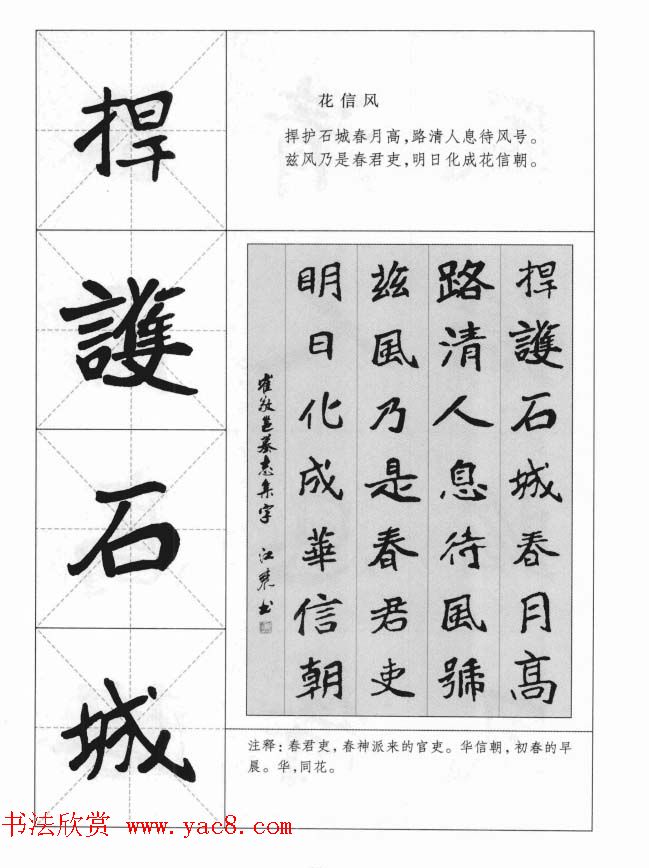 捍
護
石
城
花信风
捍护石城春月高，路清人息待风号。
兹风乃是春君吏，明日化成花信朝。
捍護石城春月高
路清人息待風號
兹風乃是春君吏
明日化成華信朝
崔敬邕墓志集字 江
书
注释：春君吏，春神派来的官吏。华信朝，初春的早
晨。华，同花。
书法欣赏 www.yac8.com